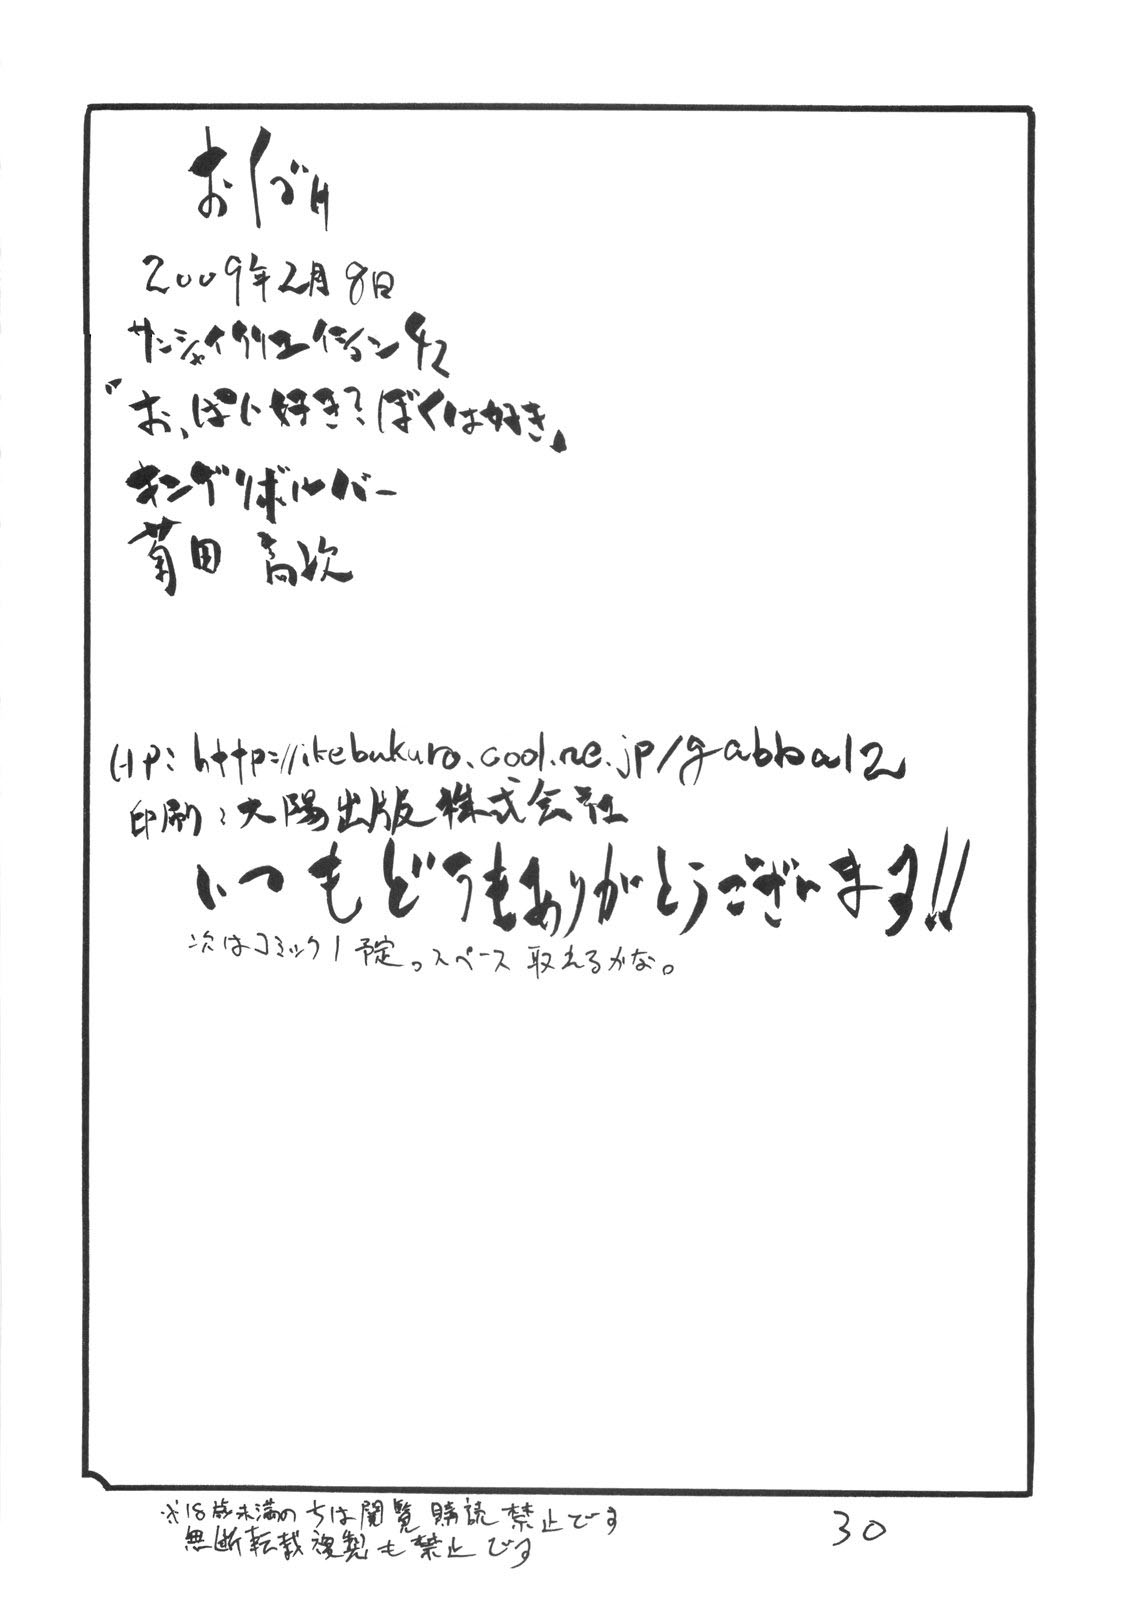 おくづけ
2009年2月8日
サンシャイクリエイション42
『おっぱい好き?ぼくは好き』
キングリボルバー
菊田 高次
HP: http://ikebukuro.cool.ne.jp/gabba12
印刷:大陽出版株式会社
いつもどうもありがとうございまする!!
次はコミック1予定。スペース取れるかな。
※18歳未満の方は閲覧購読禁止です
無断転載複製も禁止です
30